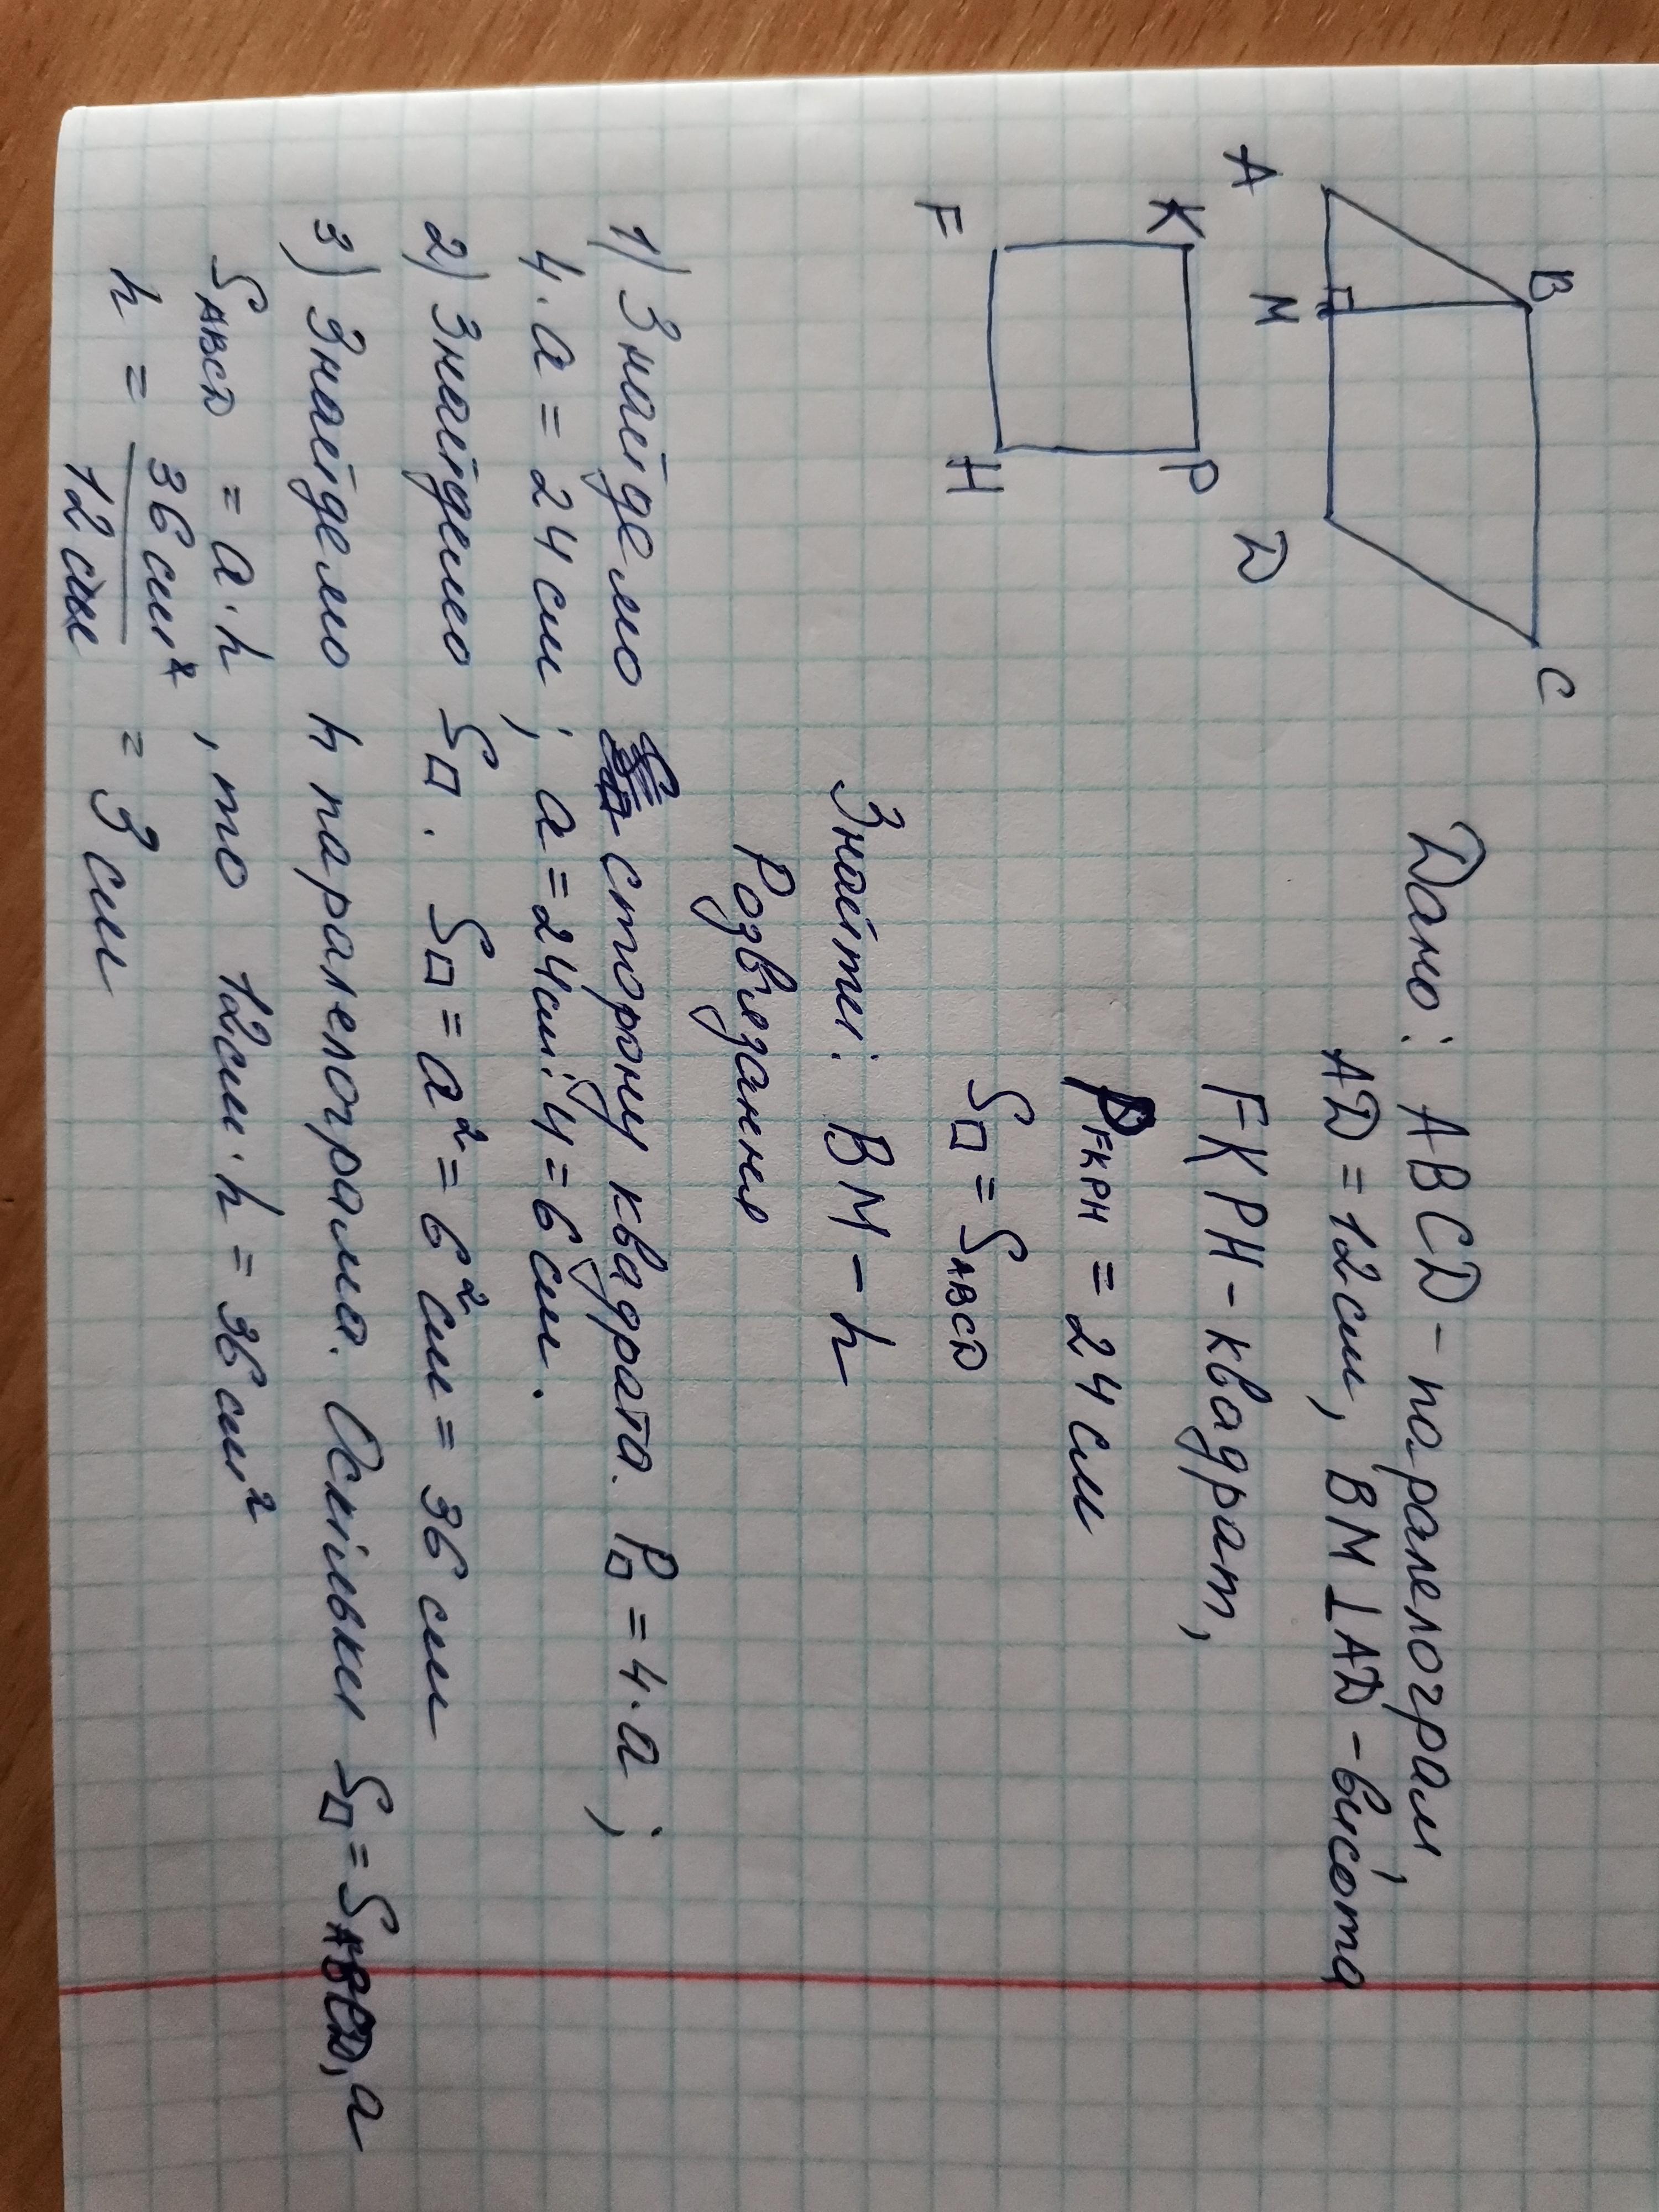 B
C
A
M
D
K
P
F
H
Дано: ABCD - паралелограм,
AD = 12 см, BM ⊥ AD - висота
FKPH - квадрат,
P FKPH = 24 см
S□ = S ABCD
Знайти: BM - h
Розв'язання
1) Знайдемо сторону квадрата. P□ = 4·a;
4·a = 24 см; a = 24 см : 4 = 6 см.
2) Знайдемо S□. S□ = a² = 6² см = 36 см
3) Знайдемо h паралелограма. Оскільки S□ = S ABCD, а
S ABCD = a·h, то 12 см · h = 36 см²
h = 36 см² / 12 см = 3 см